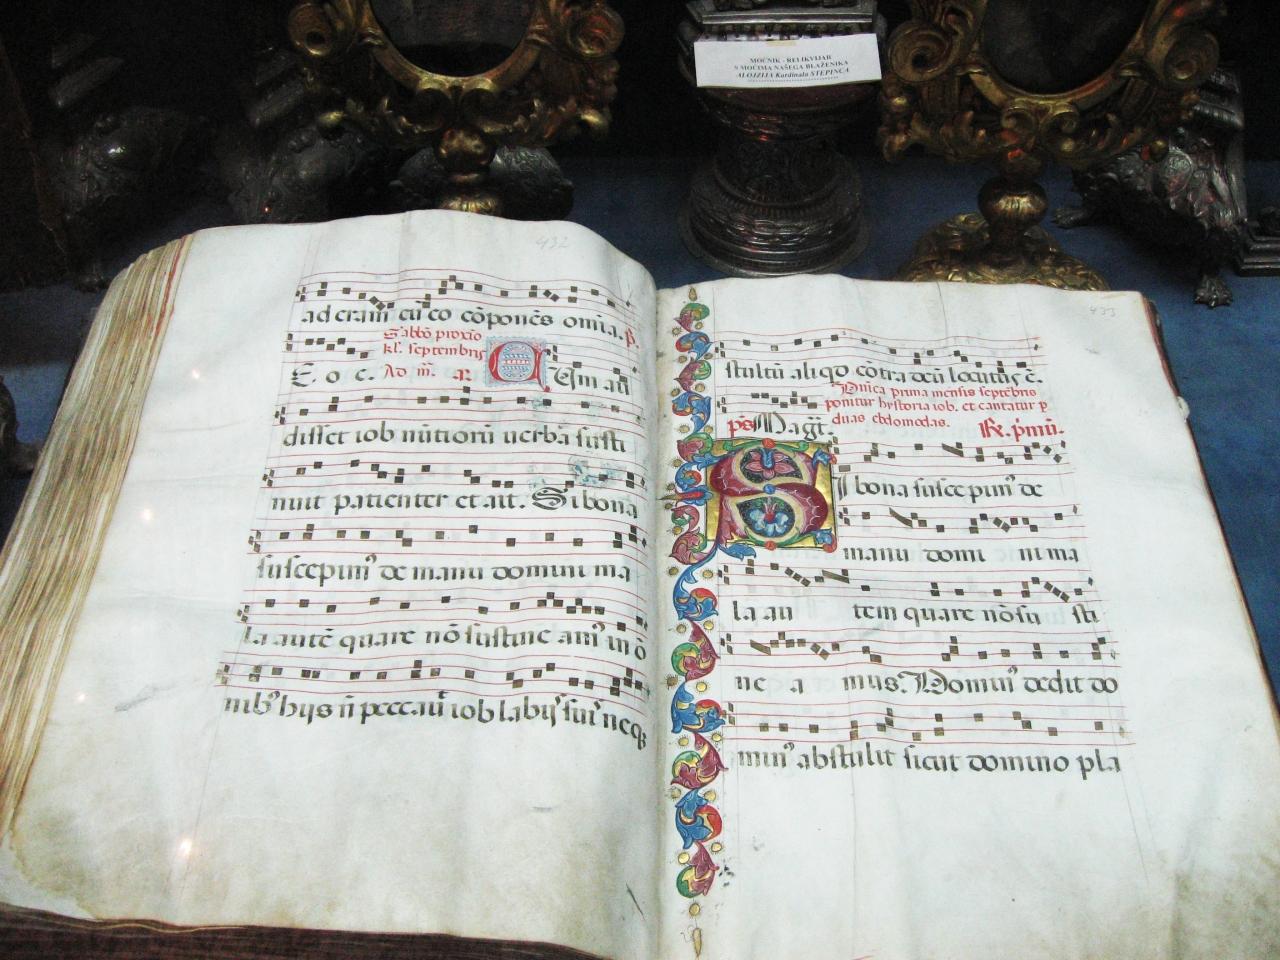 MOĆNIK - RELIKVIJAR
S MOĆIMA NAŠEGA BLAŽENIKA
ALOJZIJA Kardinala STEPINCA
432
ad eram cū eo cōponēs om̄ia.
Sabbō proxīo
kl. septembris
E. o c. Ad m̄.
disset iob nūtiorū uerba susti
nuit patienter et ait. Si bona
suscepim⁹ de manu domini ma
la autē quare nō sustine am⁹ in ō
nib⁹ hijs n̄ peccauit iob labijs suis neq;
433
stultū aliquo cōtra deū locutus ē.
Dn̄ica prima mensis septēbris
ponitur hystoria iob. et cantatur p
duas ebdomodas. R. p̄mū.
p̄s Magn̄t.
SI bona suscepim⁹ de
manu domi ni ma
la au tem quare nō su sti
ne a mus. Domin⁹ dedit do
min⁹ abstulit sicut domino pla